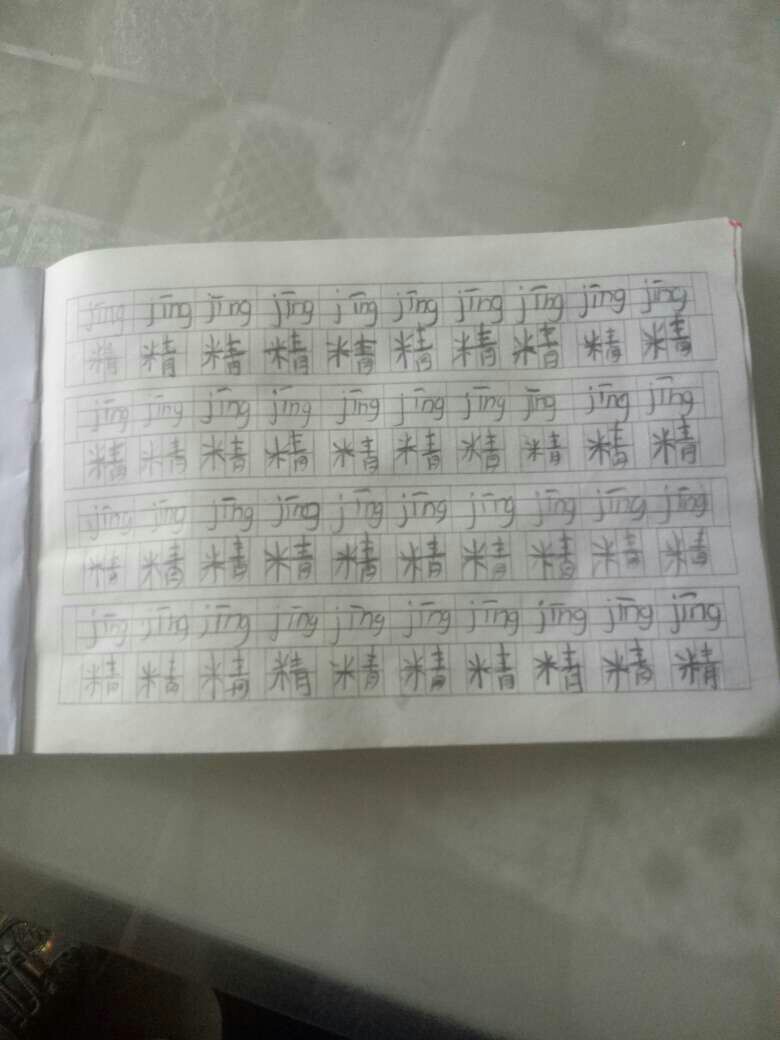 jīng jīng jīng jīng jīng jīng jīng jīng jīng jīng
精 精 精 精 精 精 精 精 精 精
jīng jīng jīng jīng jīng jīng jīng jīng jīng jīng
精 精 精 精 精 精 精 精 精 精
jīng jīng jīng jīng jīng jīng jīng jīng jīng jīng
精 精 精 精 精 精 精 精 精 精
jīng jīng jīng jīng jīng jīng jīng jīng jīng jīng
精 精 精 精 精 精 精 精 精 精